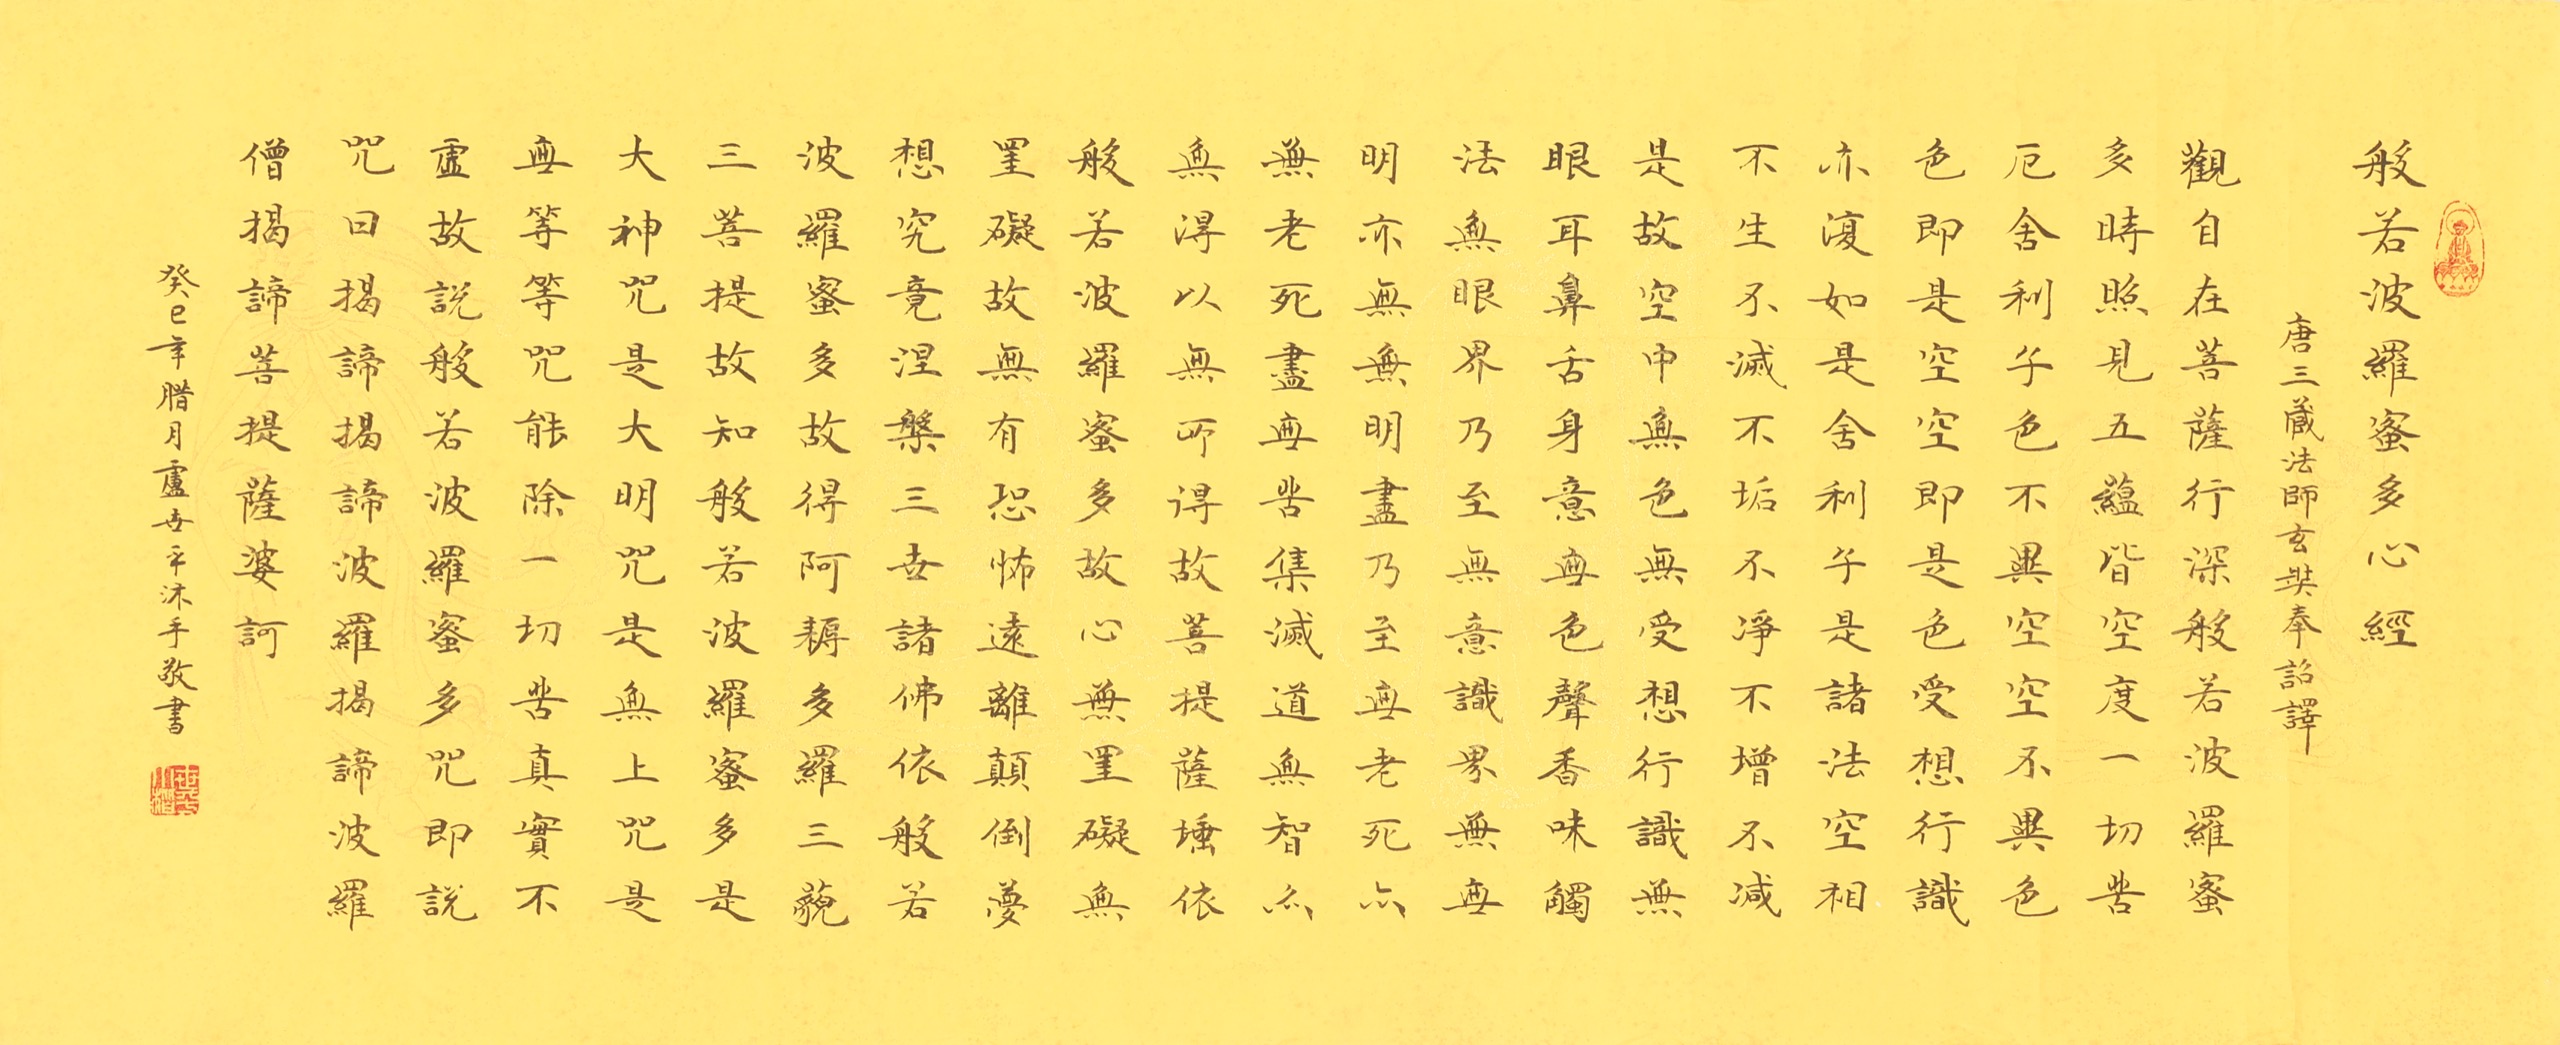 般若波羅蜜多心經
唐三藏法師玄奘奉詔譯
觀自在菩薩行深般若波羅蜜
多時照見五蘊皆空度一切苦
厄舍利子色不異空空不異色
色即是空空即是色受想行識
亦復如是舍利子是諸法空相
不生不滅不垢不淨不增不減
是故空中無色無受想行識無
眼耳鼻舌身意無色聲香味觸
法無眼界乃至無意識界無無
明亦無無明盡乃至無老死亦
無老死盡無苦集滅道無智亦
無得以無所得故菩提薩埵依
般若波羅蜜多故心無罣礙無
罣礙故無有恐怖遠離顛倒夢
想究竟涅槃三世諸佛依般若
波羅蜜多故得阿耨多羅三藐
三菩提故知般若波羅蜜多是
大神咒是大明咒是無上咒是
無等等咒能除一切苦真實不
虛故說般若波羅蜜多咒即說
咒曰揭諦揭諦波羅揭諦波羅
僧揭諦菩提薩婆訶
癸巳年腊月盧世平沐手敬書